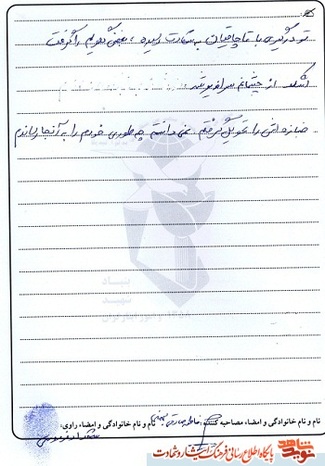 تو درگیری با قاچاقچیان به شهادت رسیده، بغض گلویم را گرفت
اشک از چشمانم سرازیر شد.
جنازه اش را تحویل گرفتم نمی دانستم چطوری خودم را به آنجا رساندم
بنیاد
شهید
نام و نام خانوادگی و امضاء مصاحبه کننده: نام و نام خانوادگی و امضاء راوی:
نوید شاهد
پایگاه اطلاع رسانی فرهنگ ایثار و شهادت